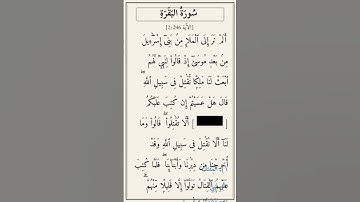 سُورَةُ البَقَرَةِ
[الآية 2:246]
أَلَمْ تَرَ إِلَى ٱلْمَلَإِ مِنۢ بَنِىٓ إِسْرَٰٓءِيلَ
مِنۢ بَعْدِ مُوسَىٰٓ إِذْ قَالُوا۟ لِنَبِىٍّ لَّهُمُ
ٱبْعَثْ لَنَا مَلِكًا نُّقَٰتِلْ فِى سَبِيلِ ٱللَّهِ ۖ
قَالَ هَلْ عَسَيْتُمْ إِن كُتِبَ عَلَيْكُمُ
[ ] أَلَّا تُقَٰتِلُوا۟ ۖ قَالُوا۟ وَمَا
لَنَآ أَلَّا نُقَٰتِلَ فِى سَبِيلِ ٱللَّهِ وَقَدْ
أُخْرِجْنَا مِن دِيَٰرِنَا وَأَبْنَآئِنَا ۖ فَلَمَّا كُتِبَ
عَلَيْهِمُ ٱلْقِتَالُ تَوَلَّوْا۟ إِلَّا قَلِيلًا مِّنْهُمْ ۗ